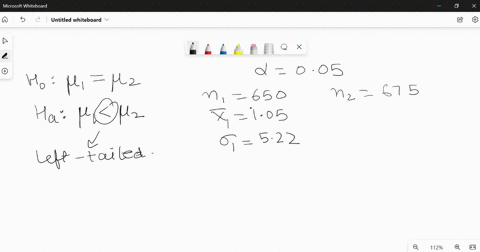 Microsoft Whiteboard
Untitled whiteboard
H₀: μ₁ = μ₂
Ha: μ₁ < μ₂
Left-tailed.
α = 0.05
n₁ = 650 n₂ = 675
x̄₁ = 1.05
σ₁ = 5.22
112%